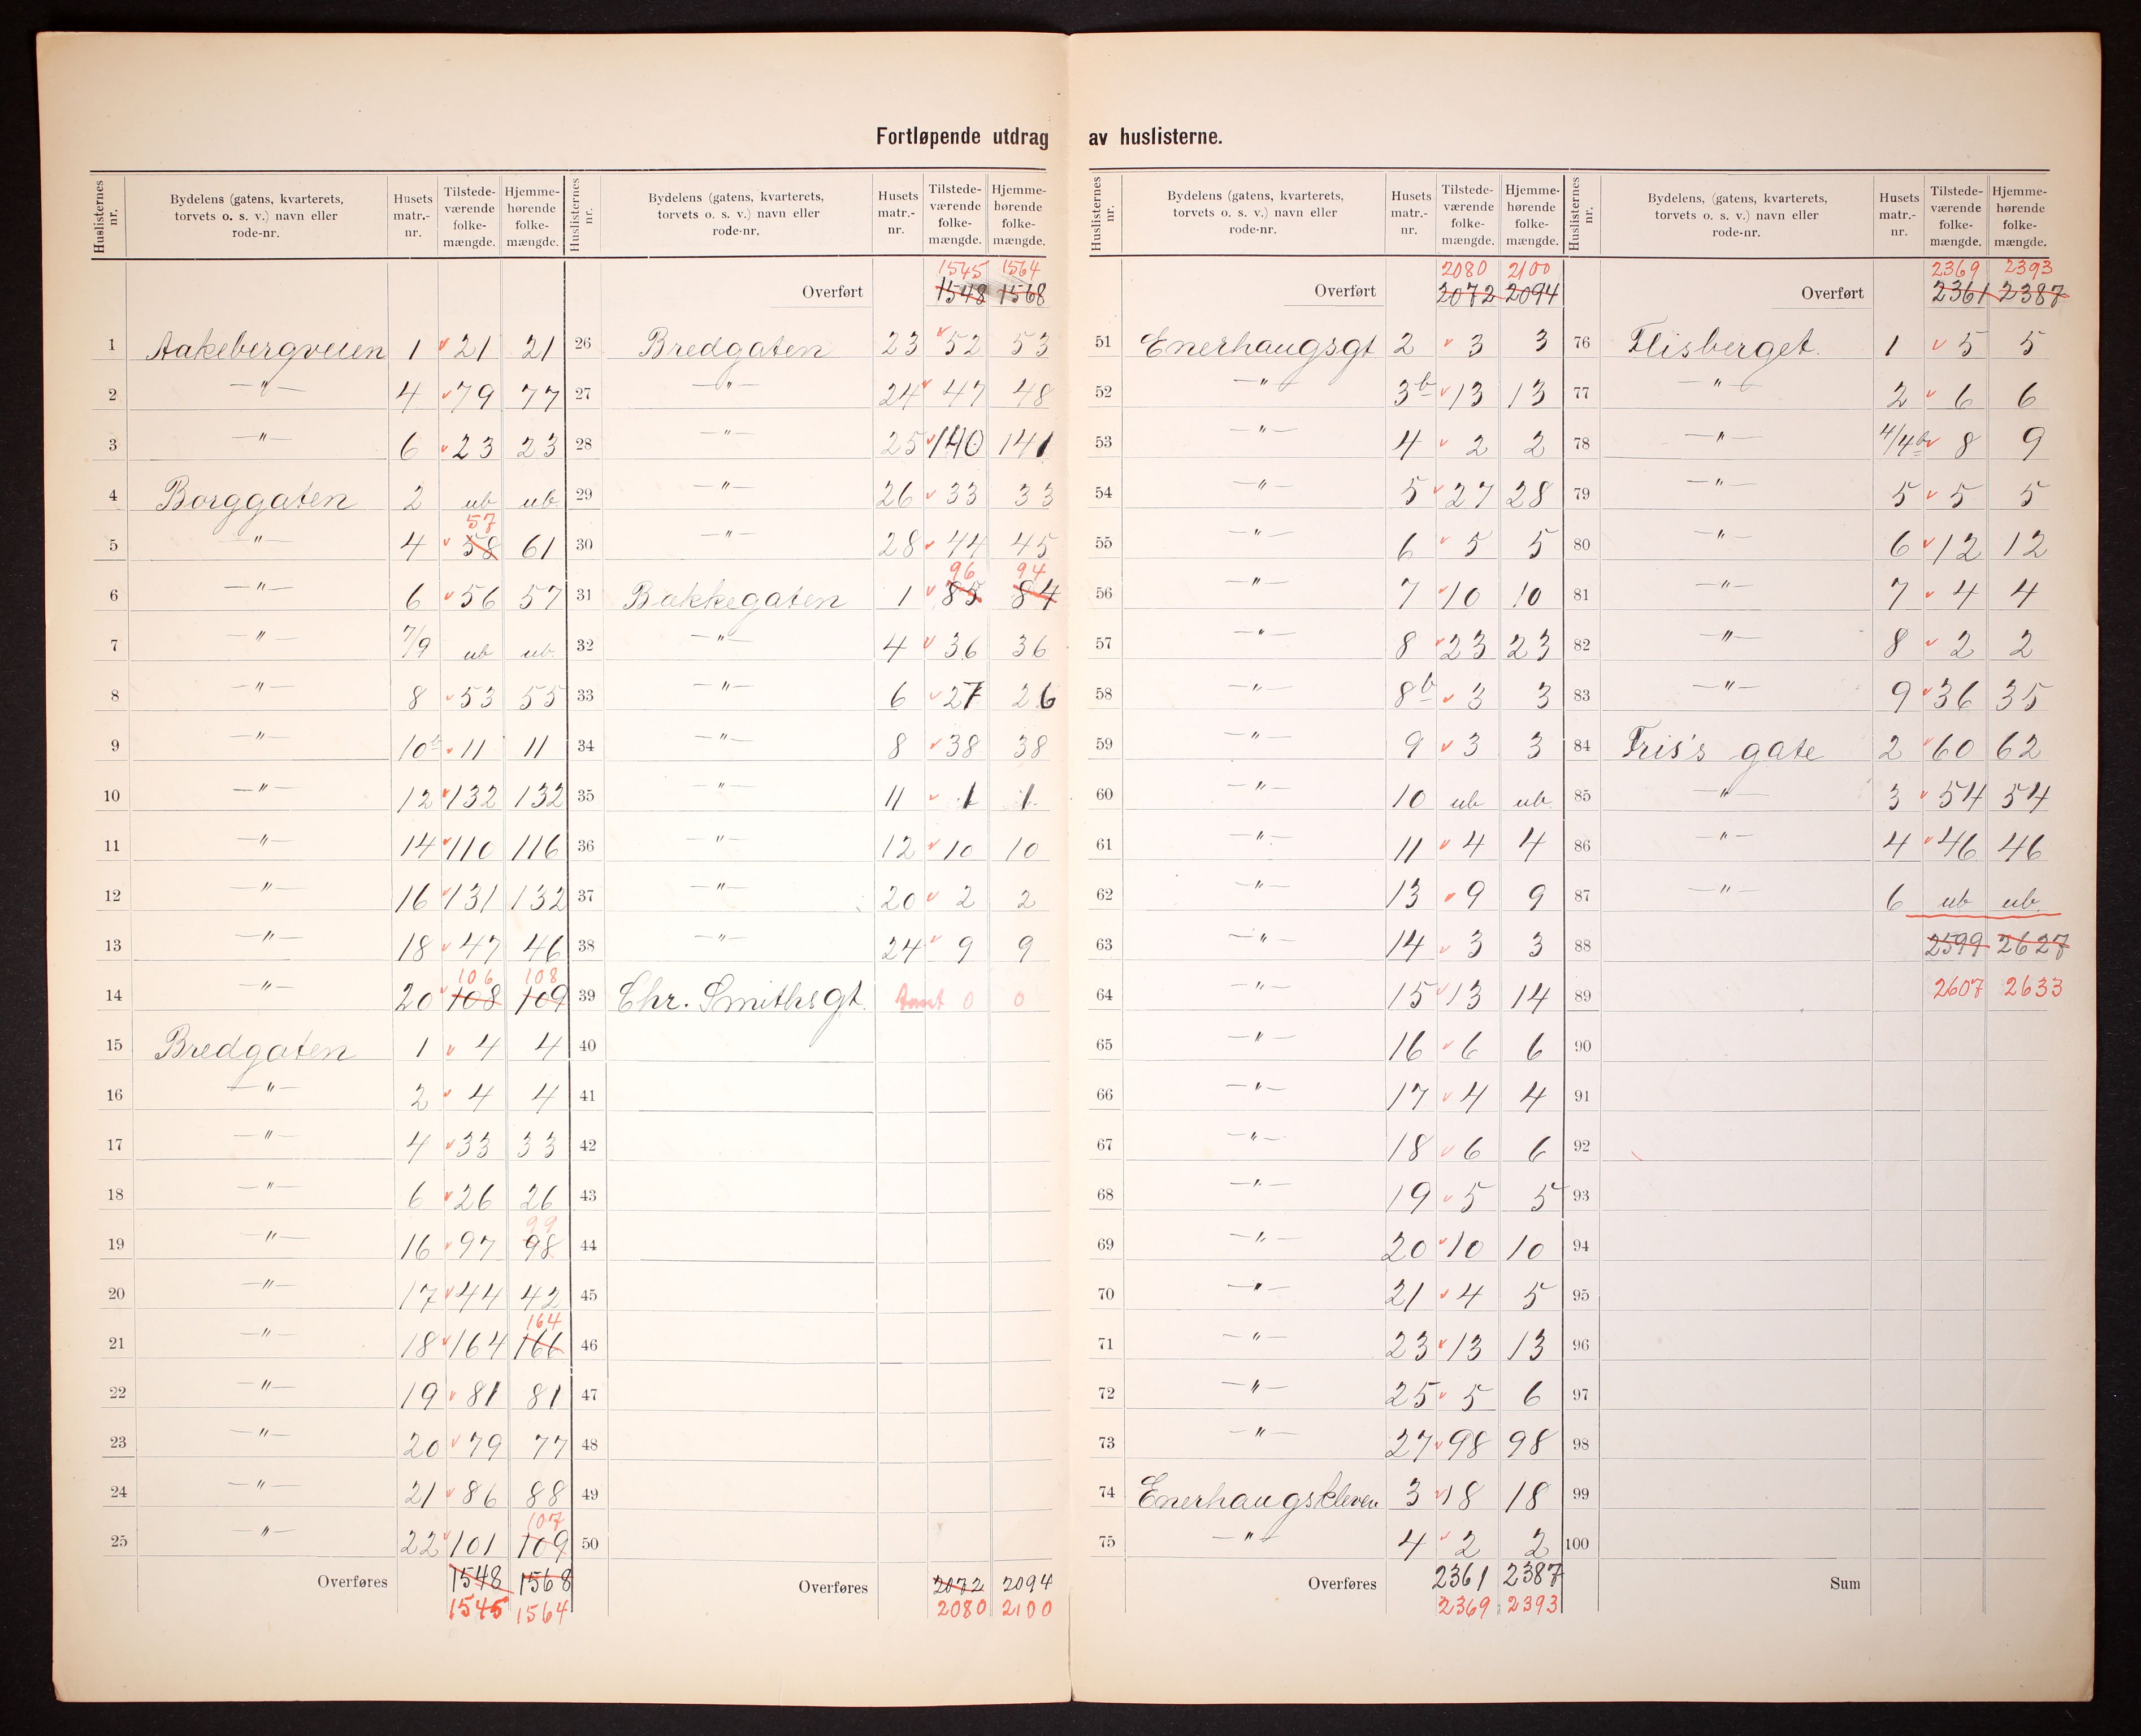 Fortløpende utdrag av huslisterne.
Huslisternes nr. | Bydelens (gatens, kvarterets, torvets o. s. v.) navn eller rode-nr. | Husets matr.-nr. | Tilstede-værende folke-mængde. | Hjemme-hørende folke-mængde.
1 Aakebergveien 1 v 21 21
2 —"— 4 v 79 77
3 —"— 6 v 23 23
4 Borggaten 2 ub ub
57
5 —"— 4 v 58 61
6 —"— 6 v 56 57
7 —"— 7/9 ub ub.
8 —"— 8 v 53 55
9 —"— 10b v 11 11
10 —"— 12 v 132 132
11 —"— 14 v 110 116
12 —"— 16 v 131 132
13 —"— 18 v 47 46
106 108
14 —"— 20 v 108 109
15 Bredgaten 1 v 4 4
16 —"— 2 v 4 4
17 —"— 4 v 33 33
18 —"— 6 v 26 26
99
19 —"— 16 v 97 98
20 —"— 17 v 44 42
164
21 —"— 18 v 164 166
22 —"— 19 v 81 81
23 —"— 20 v 79 77
24 —"— 21 v 86 88
107
25 —"— 22 v 101 109
Overføres 1548 1568
1545 1564
Huslisternes nr. | Bydelens (gatens, kvarterets, torvets o. s. v.) navn eller rode-nr. | Husets matr.-nr. | Tilstede-værende folke-mængde. | Hjemme-hørende folke-mængde.
1545 1564
Overført 1548 1568
26 Bredgaten 23 v 52 53
27 —"— 24 v 47 48
28 —"— 25 v 140 141
29 —"— 26 v 33 33
30 —"— 28 v 44 45
96 94
31 Bakkegaten 1 v 85 84
32 —"— 4 v 36 36
33 —"— 6 v 27 26
34 —"— 8 v 38 38
35 —"— 11 v 1 1
36 —"— 12 v 10 10
37 —"— 20 v 2 2
38 —"— 24 v 9 9
39 Chr. Smithsgt. 0 0
40
41
42
43
44
45
46
47
48
49
50
Overføres 2072 2094
2080 2100
Huslisternes nr. | Bydelens (gatens, kvarterets, torvets o. s. v.) navn eller rode-nr. | Husets matr.-nr. | Tilstede-værende folke-mængde. | Hjemme-hørende folke-mængde.
2080 2100
Overført 2072 2094
51 Enerhaugsgt 2 v 3 3
52 —"— 3b v 13 13
53 —"— 4 v 2 2
54 —"— 5 v 27 28
55 —"— 6 v 5 5
56 —"— 7 v 10 10
57 —"— 8 v 23 23
58 —"— 8b v 3 3
59 —"— 9 v 3 3
60 —"— 10 ub ub
61 —"— 11 v 4 4
62 —"— 13 v 9 9
63 —"— 14 v 3 3
64 —"— 15 v 13 14
65 —"— 16 v 6 6
66 —"— 17 v 4 4
67 —"— 18 v 6 6
68 —"— 19 v 5 5
69 —"— 20 v 10 10
70 —"— 21 v 4 5
71 —"— 23 v 13 13
72 —"— 25 v 5 6
73 —"— 27 v 98 98
74 Enerhaugskleven 3 v 18 18
75 —"— 4 v 2 2
Overføres 2361 2387
2369 2393
Huslisternes nr. | Bydelens (gatens, kvarterets, torvets o. s. v.) navn eller rode-nr. | Husets matr.-nr. | Tilstede-værende folke-mængde. | Hjemme-hørende folke-mængde.
2369 2393
Overført 2361 2387
76 Flisberget. 1 v 5 5
77 —"— 2 v 6 6
78 —"— 4/4b v 8 9
79 —"— 5 v 5 5
80 —"— 6 v 12 12
81 —"— 7 v 4 4
82 —"— 8 v 2 2
83 —"— 9 v 36 35
84 Friis's gate 2 v 60 62
85 —"— 3 v 54 54
86 —"— 4 v 46 46
87 —"— 6 ub ub.
88 2599 2627
89 2607 2633
90
91
92
93
94
95
96
97
98
99
100
Sum